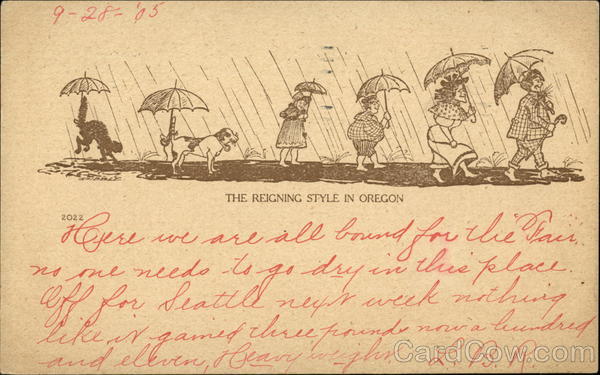 9-28-'05
THE REIGNING STYLE IN OREGON
2022
Here we are all bound for the Fair,
no one needs to go dry in this place.
Off for Seattle next week nothing
like it gained three pounds now a hundred
and eleven, Heavy weight. L. B. R.
CardCow.com